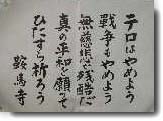 テロはやめよう
戦争もやめよう
無慈悲で残酷だ
真の平和を願って
ひたすら祈ろう
鞍馬寺